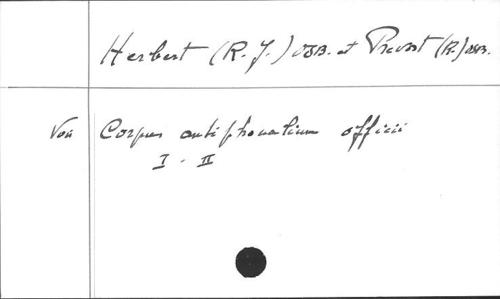 Herbert (R.J.) OSB. et Prevost (R.) OSB.
Voir Corpus antiphonalium officii
I - II